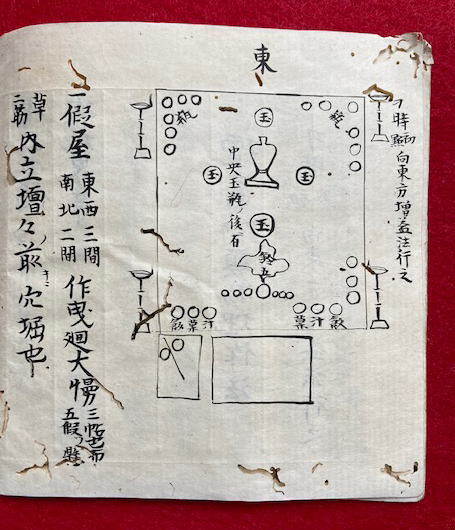 東
時 向東方增益法行之
瓶
瓶
玉
玉
玉
玉
中央玉瓶ノ後有
鈴
五
飯 汁 菓
汁 菓 飯
一假屋 東西三間 南北二間 作曳廻大幔
内立壇々前 穴堀也